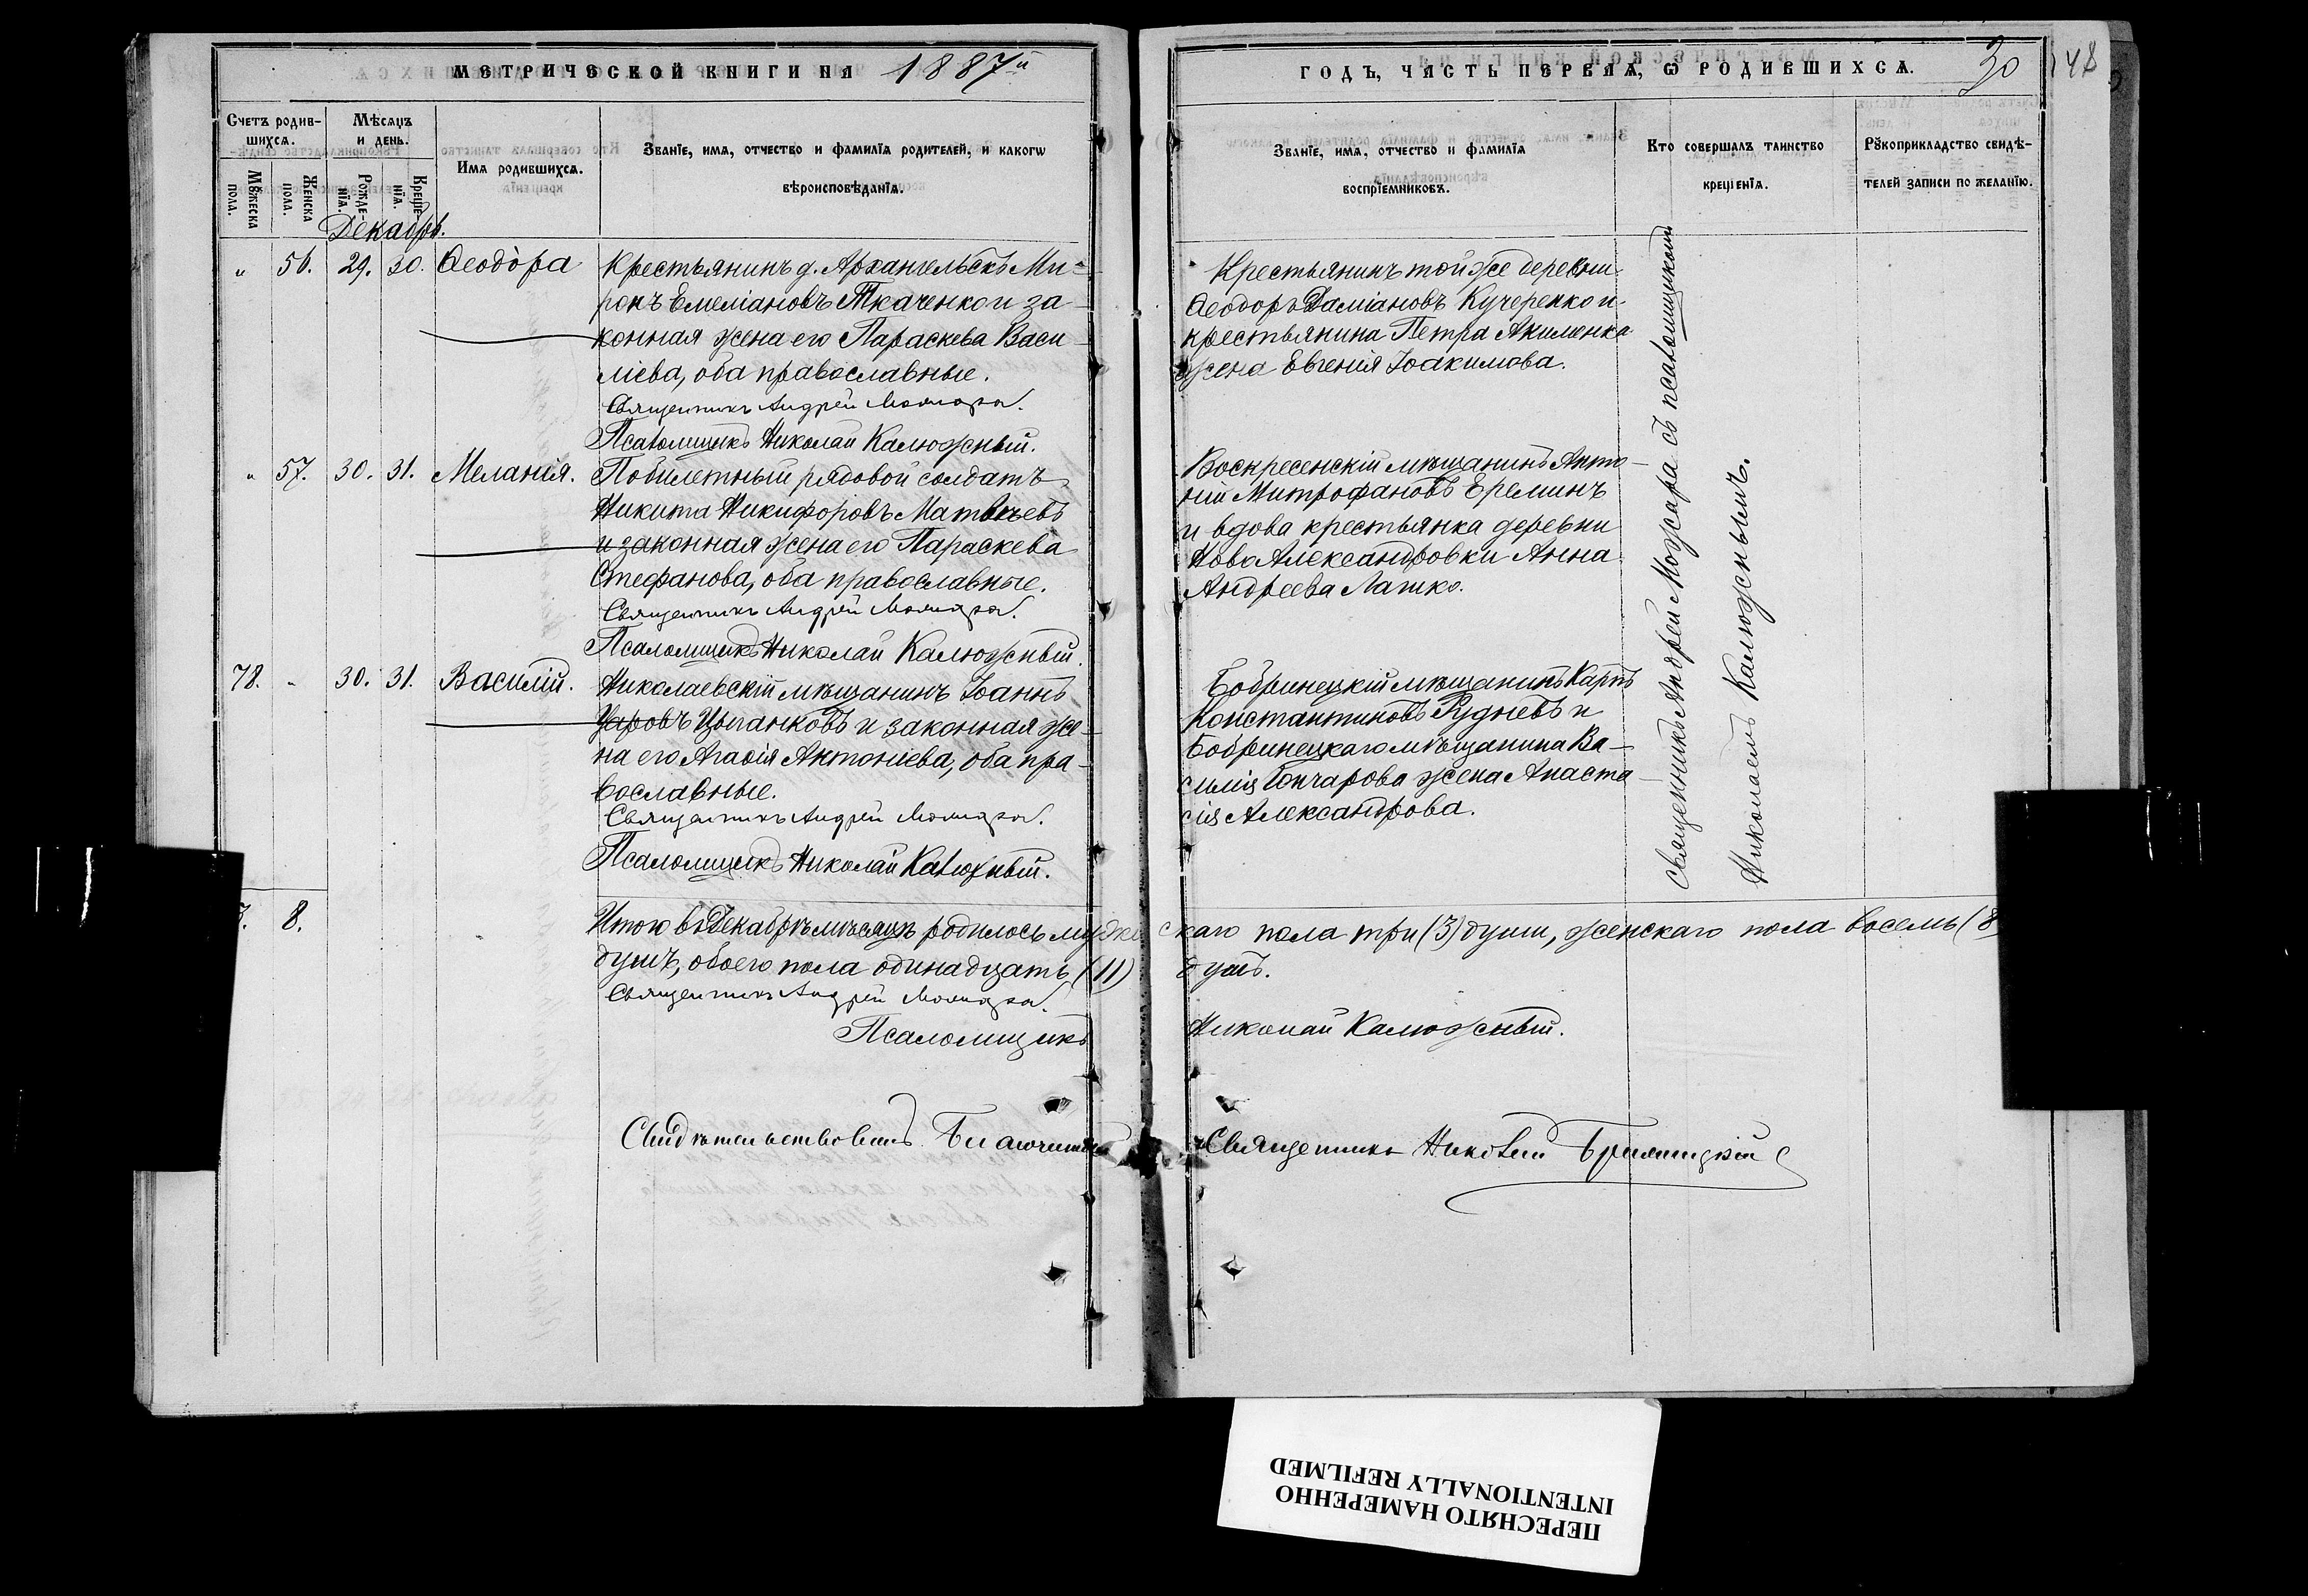 МЕТРИЧЕСКОЙ КНИГИ НА 1887й
ГОДЪ, ЧАСТЬ ПЕРВАѦ, Ѡ РОДИВШИХСѦ. 30
148
Счетъ родив-
шихсѧ.
Мѣсѧцъ
и день.
Имѧ родившихсѧ.
Званїе, имѧ, отчество и фамилїѧ родителей, и какогѡ
вѣроисповѣданїѧ.
Мꙋжеска пола.
Женска пола.
Рожде-нїѧ.
Креще-нїѧ.
Званїе, имѧ, отчество и фамилїѧ
воспрїемниковъ.
Кто совершалъ таинство
крещенїѧ.
Рꙋкоприкладство свидѣ-
телей записи по желанїю.
Декабрь.
„ 56. 29. 30. Ѳеодора
Крестьянинъ д. Архангельскъ Ми-
ронъ Емеліановъ Ткаченко и за-
конная жена его Параскева Васи-
ліева, оба православные.
Священникъ Андрей
Псаломщикъ Николай Калюжный.
Крестьянинъ той же деревни
Ѳеодоръ Даміановъ Кучеренко и
крестьянина Петра Акименка
жена Евгенія Іоакимова.
„ 57. 30. 31. Меланія.
Побилетный рядовой солдатъ
Никита Никифоровъ Матвѣевъ
и законная жена его Параскева
Стефанова, оба православные.
Священникъ Андрей
Псаломщикъ Николай Калюжный.
Воскресенскій мѣщанинъ Анто-
ній Митрофановъ Ереминъ
и вдова крестьянка деревни
Ново Александровки Анна
Андреева Лашко.
78. „ 30. 31. Василій.
Николаевскій мѣщанинъ Іоаннъ
Цыганковъ и законная же-
на его Агафія Антоніева, оба пра-
вославные.
Священникъ Андрей
Псаломщикъ Николай Калюжный.
Бобринецкій мѣщанинъ Карпъ
Константиновъ Рудневъ и
Бобринецкаго мѣщанина Ва-
силія Гончарова жена Анаста-
сія Александрова.
Священникъ Андрей Можара съ псаломщикомъ
Николаемъ Калюжнымъ.
3. 8.
Итого въ Декабрѣ мѣсяцѣ родилось мужскаго пола три (3) души, женскаго пола восемь (8
душъ, обоего пола одинадцать (11) душъ.
Священникъ Андрей
Псаломщикъ Николай Калюжный.
Свидѣтельствовалъ Благочинный Священникъ Николай
ПЕРЕСНЯТО НАМЕРЕННО
INTENTIONALLY REFILMED